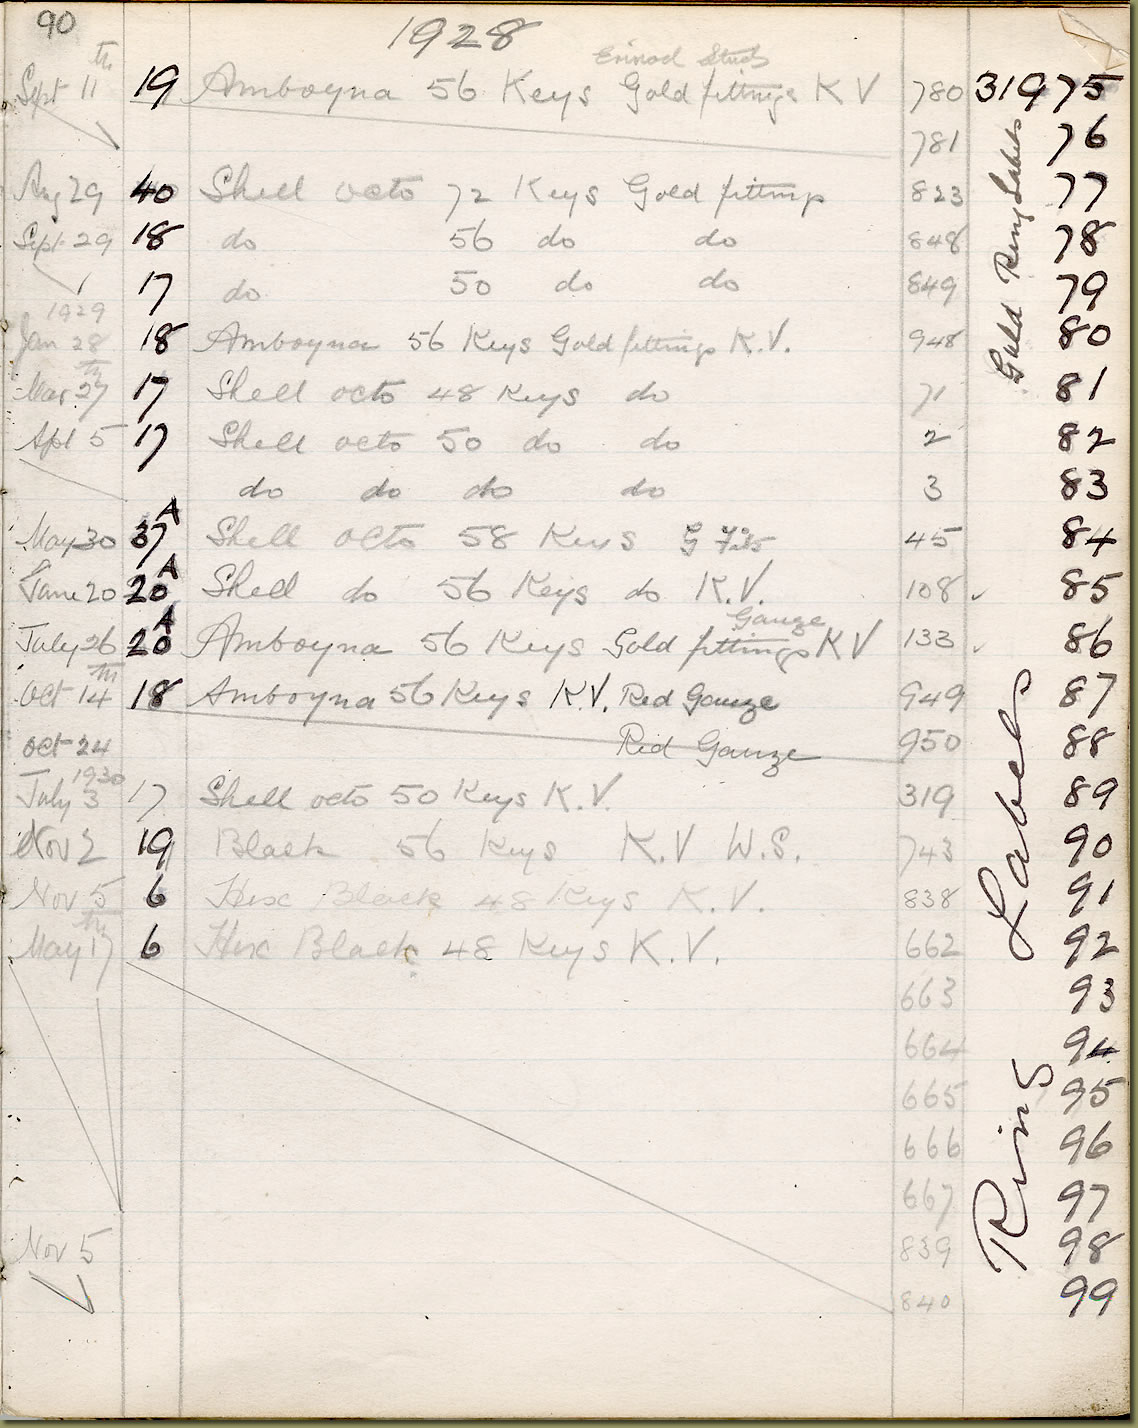 90
1928
Sept 11th 19 Amboyna 56 Keys Gold fittings K V 780 31975
781 76
Aug 29 40 Shell octo 72 Keys Gold fittings 823 77
Sept 29 18 do 56 do do 848 78
17 do 50 do do 849 79
1929
Jan 28 18 Amboyna 56 Keys Gold fittings K.V. 948 80
Mar 27th 17 Shell octo 48 Keys do 71 81
Apl 5 17 Shell octo 50 do do 2 82
do do do do 3 83
May 30 37A Shell octo 58 Keys G Fits 45 84
June 20 20A Shell do 56 Keys do K.V. 108 85
Gauze
July 26 20A Amboyna 56 Keys Gold fittings KV 133 86
Oct 14th 18 Amboyna 56 Keys K.V. Red Gauze 949 87
Oct 24 Red Gauze 950 88
1930
July 3 17 Shell octo 50 Keys K.V. 319 89
Nov 2 19 Black 56 Keys K.V W.S. 743 90
Nov 5 6 Hex Black 48 Keys K.V. 838 91
May 17th 6 Hex Black 48 Keys K.V. 662 92
663 93
664 94
665 95
666 96
667 97
Nov 5 839 98
840 99
Gold Ring Labels
Rims Labels